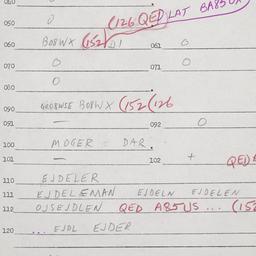 050 0 (126 QED LAT BA85U
060 BOBWX (152 061 0
070 0 071 0
080 0
090 BOBWX (152 (126
091 — 092 0
100 MOGER DAR.
101 — 102 + QED
110 EJDELER
111 EJDELÆMAN EJDELN EJDELEN
112 OJSEJDLEN QED A85US ... (152
120 ... EJDL EJDER